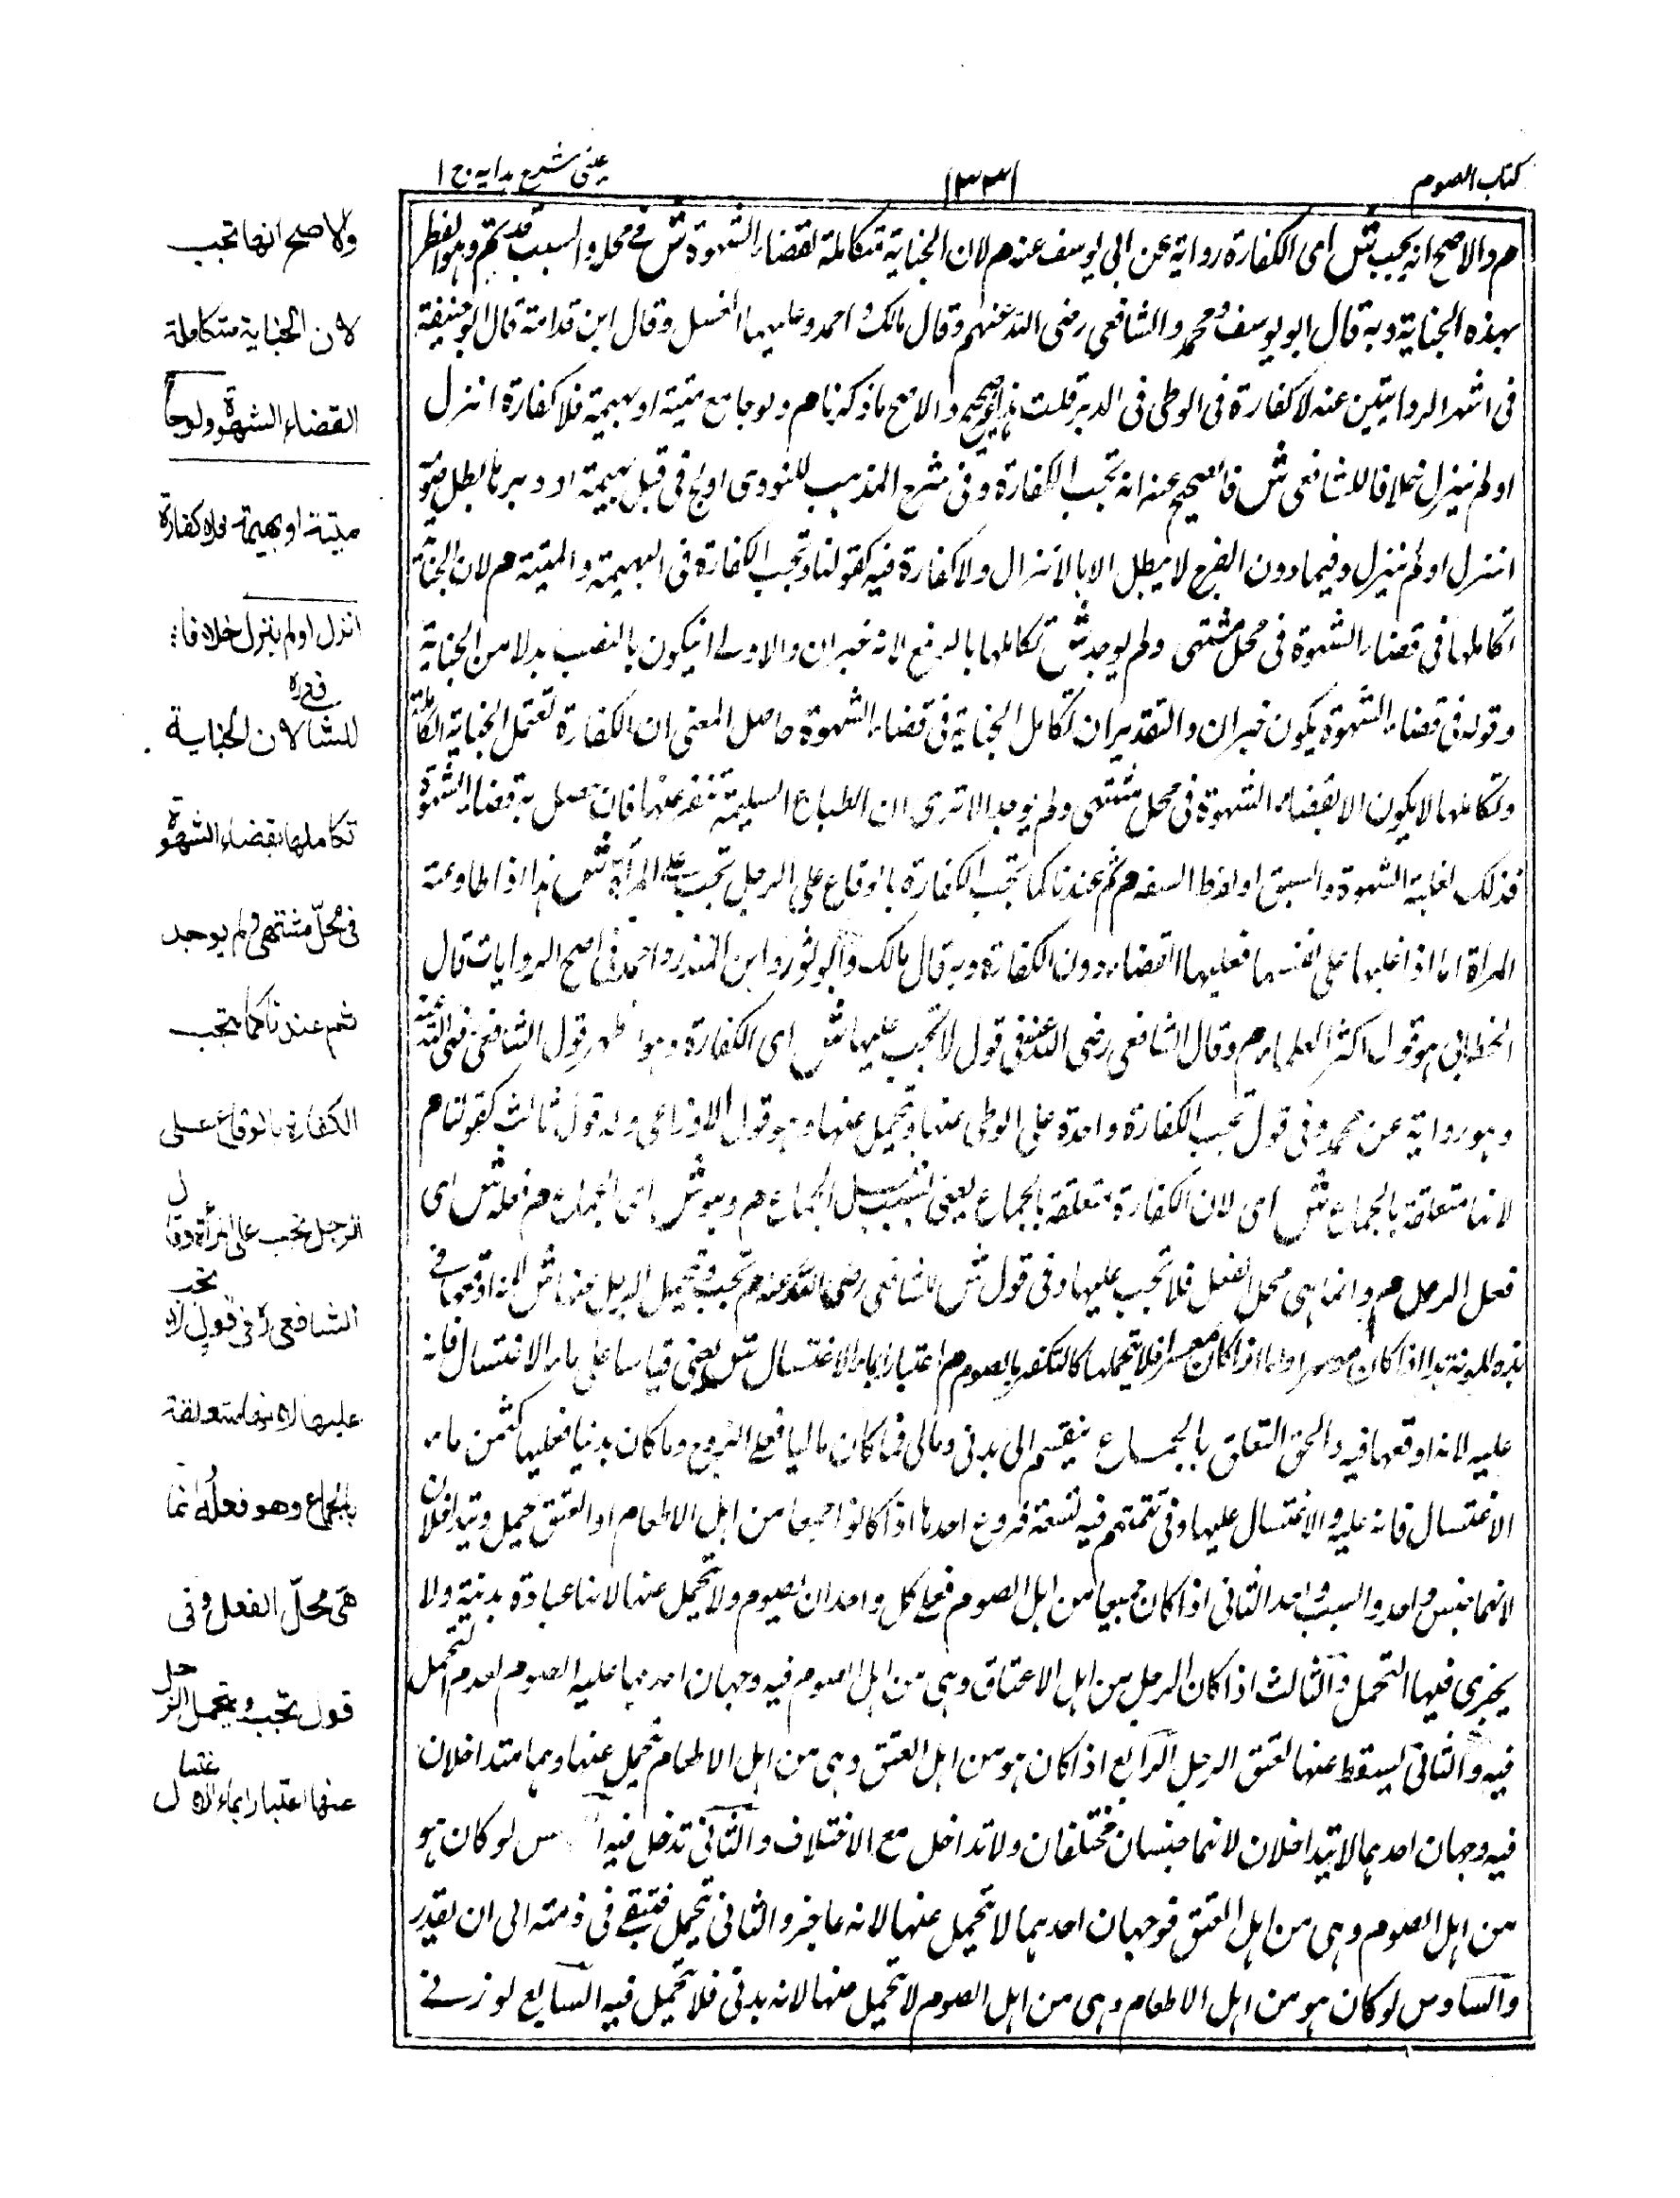 كتاب الصوم
١٣٣١
عينى شرح هدايه ج ١
م والاصح انه يجب ش اى الكفارة رواية عن ابى يوسف عنه م لان الجناية متكاملة لقضاء الشهوة ش فى محل والسبب قد تم وهو الفطر
بهذه الجناية وبه قال ابو يوسف ومحمد والشافعى رضى الله عنهم وقال مالك واحمد وعليهما الغسل وقال ابن قدامة قال ابو حنيفة
فى اشهر الروايتين عنه لا كفارة فى الوطى فى الدبر قلت هذا غير صحيح والاصح ما ذكرناه م ولو جامع ميتة او بهيمة فلا كفارة انزل
او لم ينزل خلافا للشافعى ش فالصحيح عنه انه تجب الكفارة وفى شرح المذهب للنووى اولج فى قبل بهيمة او دبرها بطل صومه
انزل او لم ينزل وفيما دون الفرج لا يبطل الا بالانزال ولا كفارة فيه كقولنا وتجب الكفارة فى البهيمة والميتة م لان الجناية
تكاملها فى قضاء الشهوة فى محل مشتهى ولم يوجد ش تكاملها بالرفع لانه خبر ان والاولى ان يكون بالنصب بدلا من الجناية
وقوله فى قضاء الشهوة يكون خبر ان والتقدير ان تكامل الجناية فى قضاء الشهوة حاصل المعنى ان الكفارة تعتمل الجناية الكاملة
وتكاملها لا يكون الا بقضاء الشهوة فى محل مشتهى ولم يوجد الا ترى ان الطباع السليمة تنفر عنها فان حصل به قضاء الشهوة
فذلك لغلبة الشهوة والسبق او لفرط السفه م ثم عندنا كما تجب الكفارة بالوقاع على الرجل تجب على المرأة ش هذا اذا طاوعته
المرأة اما اذا غلبها على نفسها فعليها القضاء دون الكفارة وبه قال مالك وابو ثور وابن المنذر واحمد فى اصح الروايات قال
الخطابى هو قول اكثر العلماء م وقال الشافعى رضى الله عنه فى قول لا تجب عليها ش اى الكفارة وهو اظهر قول الشافعى رضى الله عنه
وهو رواية عن محمد وفى قول تجب الكفارة واحدة على الوطى عنها وتحمل عنها وهو قول الاوزاعى وله قول ثالث كقولنا م
لانها متعلقة بالجماع ش اى لان الكفارة متعلقة بالجماع يعنى بسبب الجماع م وهو ش اى الجماع م فعله ش اى
فعل الرجل م وانما هى محل الفعل فلا تجب عليها وفى قول ش للشافعى رضى الله عنه م تجب ويتحمل الرجل عنها ش لانه اوقعها فى
هذه المونة هذا اذا كان موسرا واما اذا كان معسرا فلا يتحملها كالتكفر بالصوم م اعتبارا بماء الاغتسال ش يعنى قياسا على ماء الاغتسال فانه
عليه لانه اوقعها فيه والحق المتعلق بالجماع ينقسم الى بدنى ومالى فما كان ماليا فعلى الزوج وما كان بدنيا فعليها كثمن ماء
الاغتسال فانه عليه والاغتسال عليها وفى تتمتهم فيه تسعة فروع احدها اذا كانوا جميعا من اهل الاطعام او العتق تحمل ويتداخلان
لانهما جنس واحد والسبب واحد الثانى اذا كان جميعا من اهل الصوم فعلى كل واحد ان يصوم ولا تحمل عنها لانها عبادة بدنية ولا
يجزى فيها التحمل والثالث اذا كان الرجل من اهل الاعتاق وهى من اهل الصوم فيه وجهان احدهما عليه الصوم لعدم التحمل
فيه والثانى يسقط عنها لعتق الرجل الرابع اذا كان هو من اهل العتق وهى من اهل الاطعام تحمل عنها وهما متداخلان
فيه وجهان احدهما لا يتداخلان لانهما جنسان مختلفان ولا تداخل مع الاختلاف والثانى تدخل فيه س لو كان هو
من اهل الصوم وهى من اهل العتق فوجهان احدهما لا تحمل عنها لانه عاجز والثانى تحمل فتبقى فى ذمته الى ان يقدر
والسادس لو كان هو من اهل الاطعام وهى من اهل الصوم لا تحمل منها لانه بدنى فلا تحمل فيه السابع لو زنى
ولاصح انها تجب
لان الجناية متكاملة
القضاء الشهوة ولوجا
ميتة او بهيمة فلا كفارة
انزل اولم ينزل خلافا
للشا فعىره لان الجناية
تكاملها بقضاء الشهوة
فى محلّ مشتهى ولم يوجد
ثم عندنا كما تجب
الكفارة بالوقاع على
الرجل تجب على المرأة وقال
الشافعى ره فى قول لا تجب
عليها لانها متعلقة
بالجماع وهو فعله وانما
هى محلّ الفعل وفى
قول تجب ويتحمل الرجل
عنها اعتبارا بماء الاغتسال